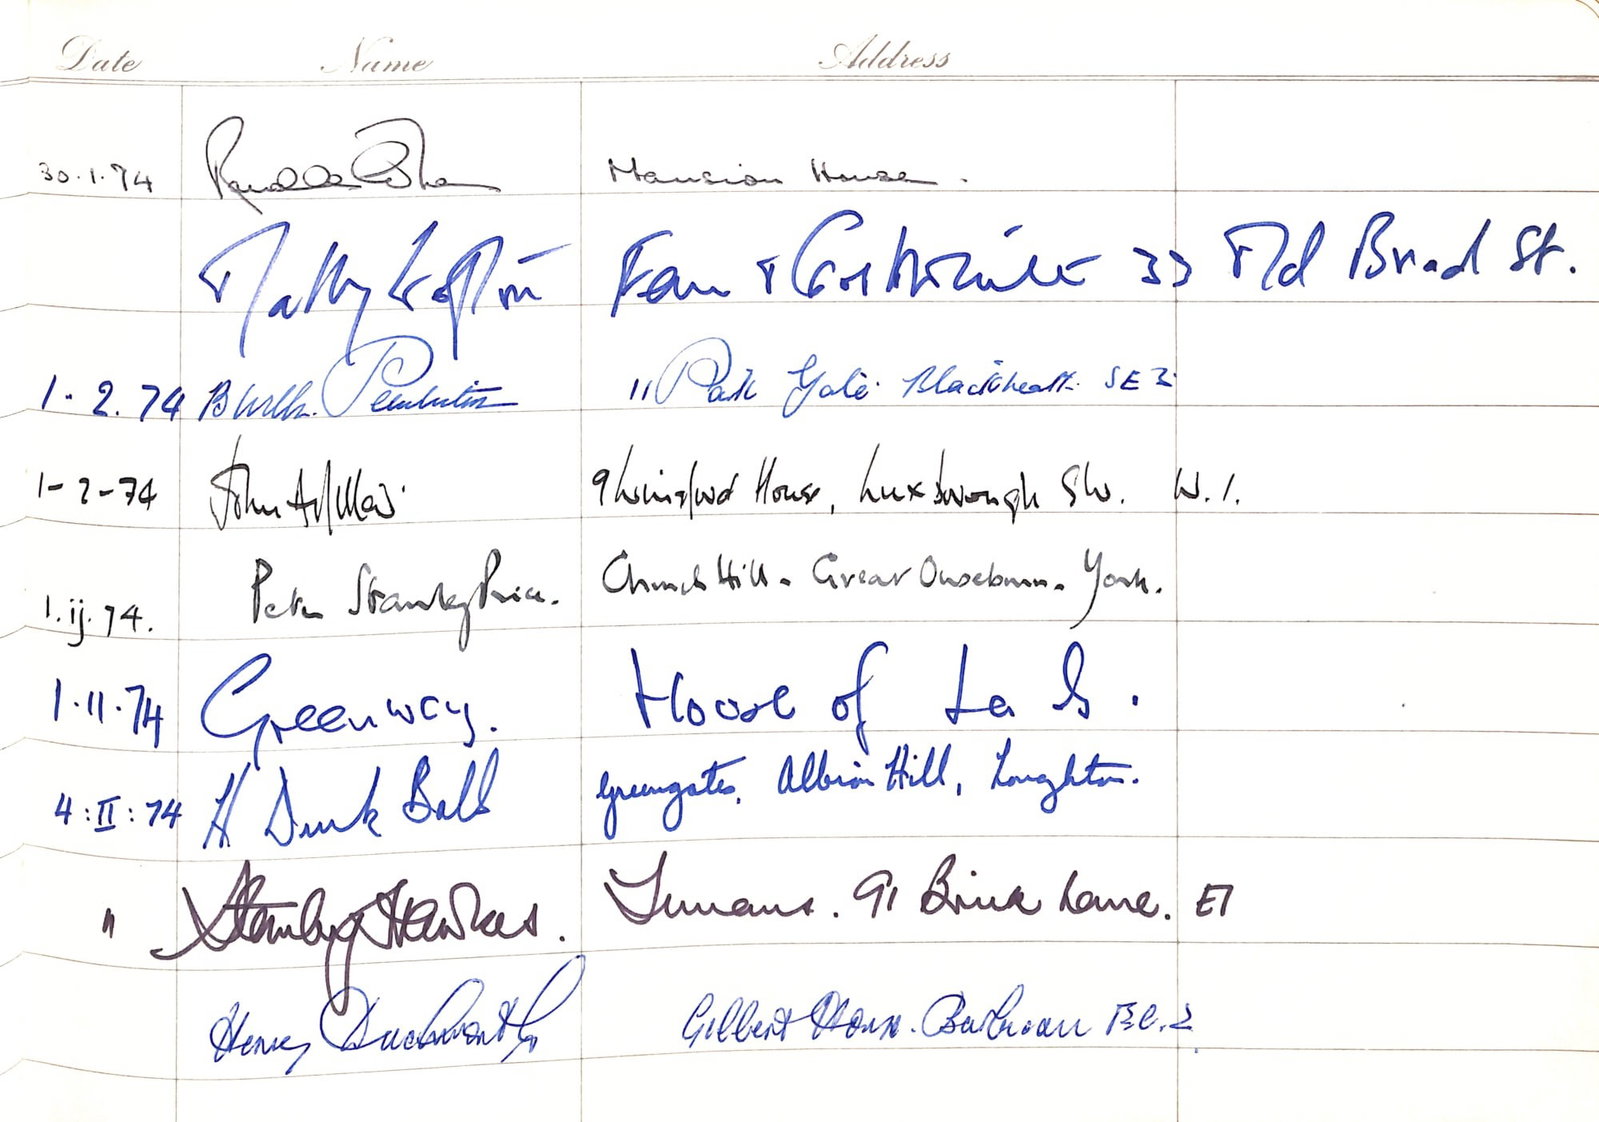 Date Name Address
30.1.74 Mansion House.
33 Old Broad St.
1.2.74 11 Park Gate Blackheath SE3
1-2-74 John 9 Winsford House, Luxborough St. W.1.
1.ij.74. Peter Stanley Price. Church Hill - Great Ouseburn - York.
1.11.74 Greenway. House of Lords.
4:II:74 H Durk Bell Greengates, Albion Hill, Loughton.
" Stanley Hawkes. Trumans. 91 Brick Lane. E1
Henry Duckworth Gilbert House. Barbican E.C.2